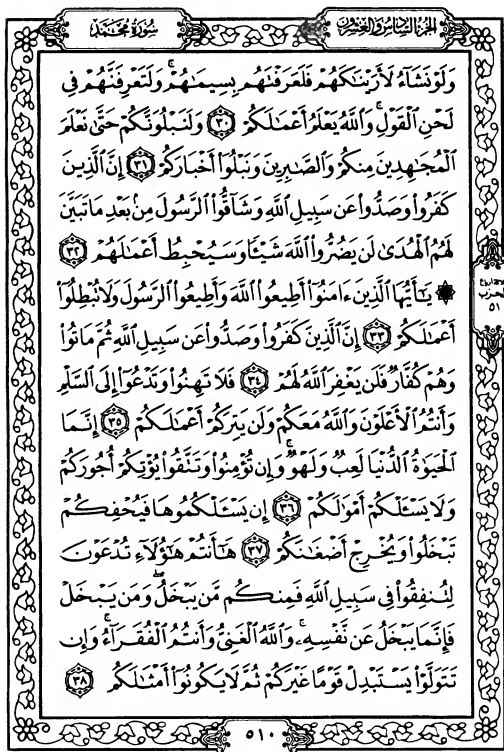 الجزء السادس والعشرون
سورة محمد
وَلَوْ نَشَآءُ لَأَرَيْنَـٰكَهُمْ فَلَعَرَفْتَهُم بِسِيمَـٰهُمْ ۚ وَلَتَعْرِفَنَّهُمْ فِى
لَحْنِ ٱلْقَوْلِ ۚ وَٱللَّهُ يَعْلَمُ أَعْمَـٰلَكُمْ ٣٠ وَلَنَبْلُوَنَّكُمْ حَتَّىٰ نَعْلَمَ
ٱلْمُجَـٰهِدِينَ مِنكُمْ وَٱلصَّـٰبِرِينَ وَنَبْلُوَا۟ أَخْبَارَكُمْ ٣١ إِنَّ ٱلَّذِينَ
كَفَرُوا۟ وَصَدُّوا۟ عَن سَبِيلِ ٱللَّهِ وَشَآقُّوا۟ ٱلرَّسُولَ مِنۢ بَعْدِ مَا تَبَيَّنَ
لَهُمُ ٱلْهُدَىٰ لَن يَضُرُّوا۟ ٱللَّهَ شَيْـًٔا وَسَيُحْبِطُ أَعْمَـٰلَهُمْ ٣٢
۞ يَـٰٓأَيُّهَا ٱلَّذِينَ ءَامَنُوٓا۟ أَطِيعُوا۟ ٱللَّهَ وَأَطِيعُوا۟ ٱلرَّسُولَ وَلَا تُبْطِلُوٓا۟
أَعْمَـٰلَكُمْ ٣٣ إِنَّ ٱلَّذِينَ كَفَرُوا۟ وَصَدُّوا۟ عَن سَبِيلِ ٱللَّهِ ثُمَّ مَاتُوا۟
وَهُمْ كُفَّارٌ فَلَن يَغْفِرَ ٱللَّهُ لَهُمْ ٣٤ فَلَا تَهِنُوا۟ وَتَدْعُوٓا۟ إِلَى ٱلسَّلْمِ
وَأَنتُمُ ٱلْأَعْلَوْنَ وَٱللَّهُ مَعَكُمْ وَلَن يَتِرَكُمْ أَعْمَـٰلَكُمْ ٣٥ إِنَّمَا
ٱلْحَيَوٰةُ ٱلدُّنْيَا لَعِبٌ وَلَهْوٌ ۚ وَإِن تُؤْمِنُوا۟ وَتَتَّقُوا۟ يُؤْتِكُمْ أُجُورَكُمْ
وَلَا يَسْـَٔلْكُمْ أَمْوَٰلَكُمْ ٣٦ إِن يَسْـَٔلْكُمُوهَا فَيُحْفِكُمْ
تَبْخَلُوا۟ وَيُخْرِجْ أَضْغَـٰنَكُمْ ٣٧ هَـٰٓأَنتُمْ هَـٰٓؤُلَآءِ تُدْعَوْنَ
لِتُنفِقُوا۟ فِى سَبِيلِ ٱللَّهِ فَمِنكُم مَّن يَبْخَلُ ۖ وَمَن يَبْخَلْ
فَإِنَّمَا يَبْخَلُ عَن نَّفْسِهِۦ ۚ وَٱللَّهُ ٱلْغَنِىُّ وَأَنتُمُ ٱلْفُقَرَآءُ ۚ وَإِن
تَتَوَلَّوْا۟ يَسْتَبْدِلْ قَوْمًا غَيْرَكُمْ ثُمَّ لَا يَكُونُوٓا۟ أَمْثَـٰلَكُم ٣٨
الحزب
٥١
٥١٠